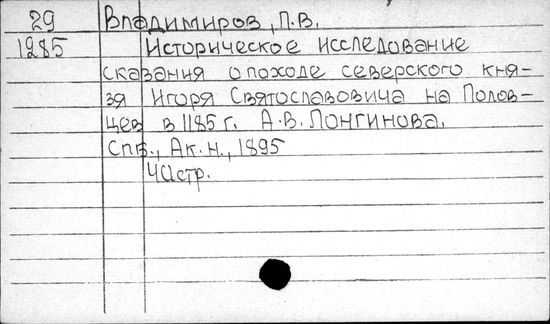 29 Владимиров, П.В.
1285 Историческое исследование
сказания о походе северского кня-
зя Игоря Святославовича на Полов-
цев в 1185 г. А.В. Лонгинова.
Спб., Ак.н., 1895
стр.